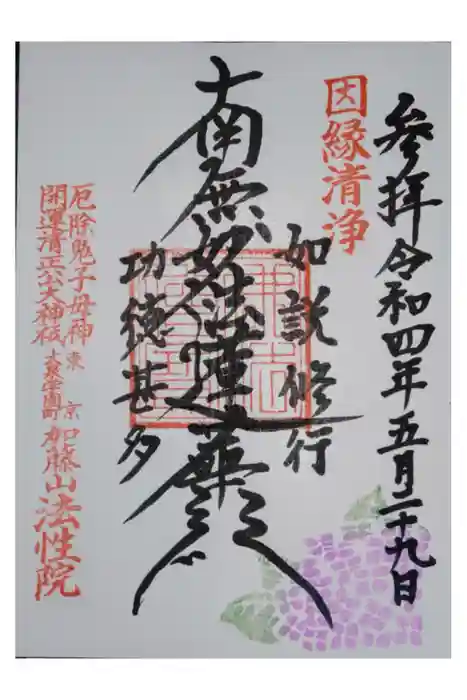 参拝令和四年五月二十九日
因縁清浄
如説修行
南無妙法蓮華経
功徳甚多
厄除鬼子母神
開運清正公大神祇
東京
加藤山法性院